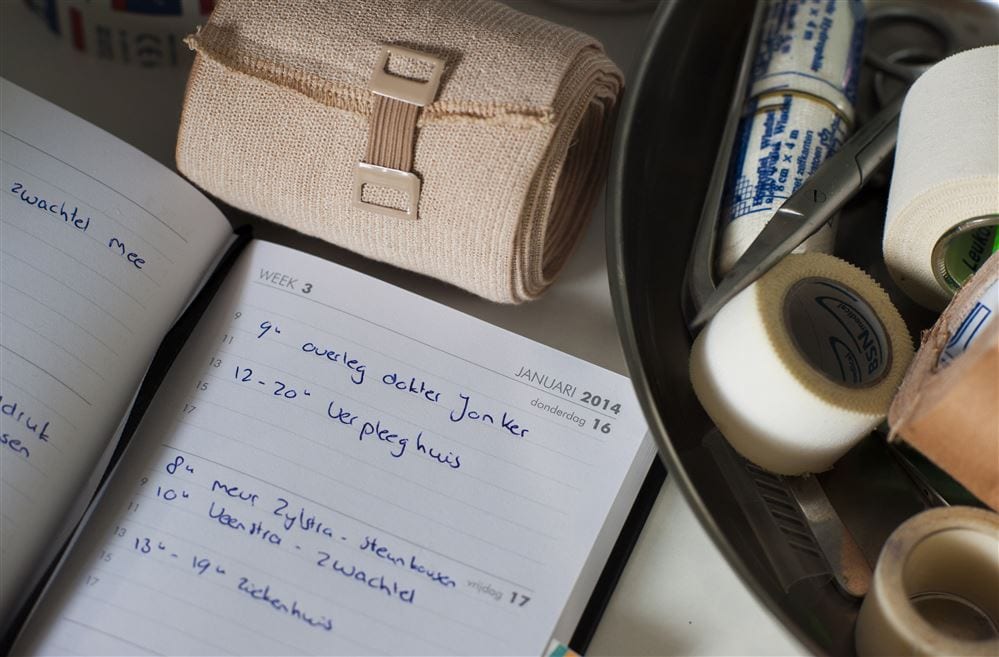 zwachtel mee
druk
sen
WEEK 3
JANUARI 2014
donderdag 16
9 9ᵘ overleg dokter Jonker
11
13 12-20ᵘ Verpleeghuis
15
17
8ᵘ meur Zylstra - steunkousen
vrijdag 17
9 10ᵘ Veenstra - Zwachtel
11
13 13ᵘ - 19ᵘ Ziekenhuis
15
17
8 cm x 4 m
x 4 m
BSN
medical
Leuko